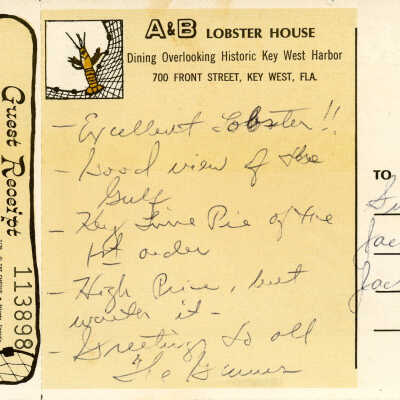 A&B LOBSTER HOUSE
Dining Overlooking Historic Key West Harbor
700 FRONT STREET, KEY WEST, FLA.
- Excellent Lobster!!
- Good view of the
Gulf
- Key Lime Pie of the
1st order
- High Price, but
worth it -
- Greetings to all
Guest Receipt
113898
TO